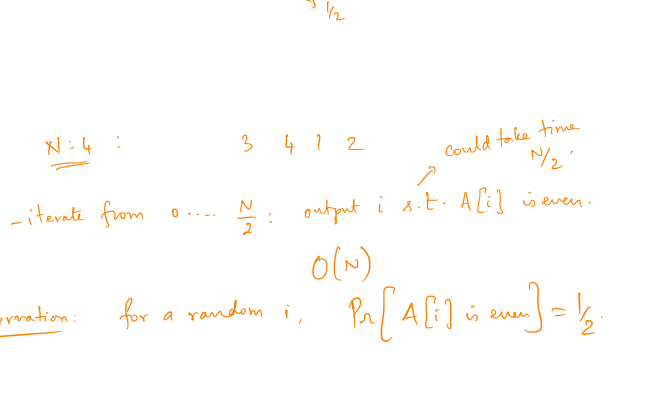 1/2
N=4 : 3 4 1 2
could take time
N/2.
- iterate from 0 .... N/2 : output i s.t. A[i] is even.
O(N)
ervation: for a random i, Pr[A[i] is even] = 1/2.